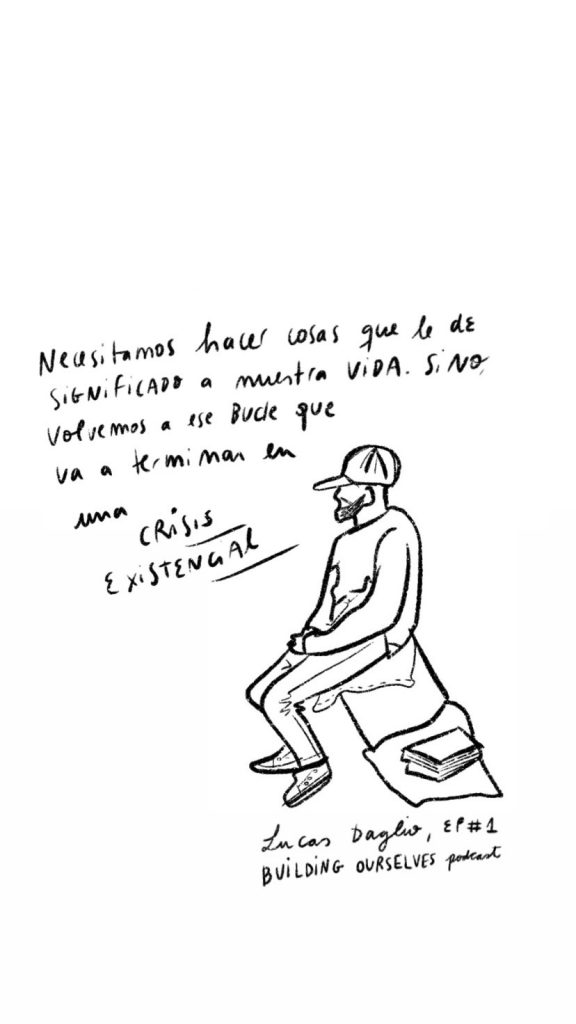 Necesitamos hacer cosas que le de
SiGNiFiCADO a nuestra ViDA. SiNO,
Volvemos a ese Bucle que
va a terminar en
una
CRiSiS
EXiSTENCiAL
Lucas Daglio, EP#1
BUiLDiNG OURSELVES podcast